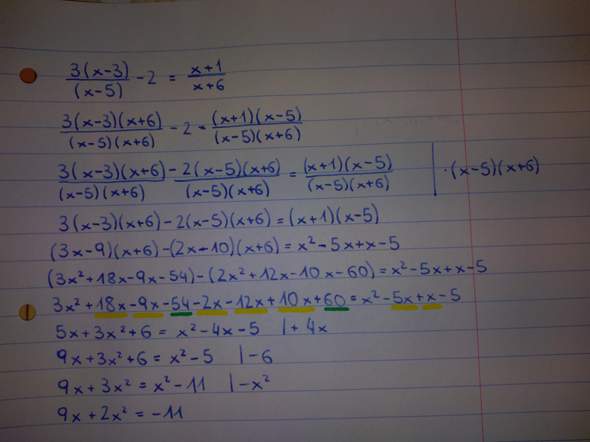 3(x-3)/(x-5) - 2 = x+1/x+6
3(x-3)(x+6)/(x-5)(x+6) - 2 - (x+1)(x-5)/(x-5)(x+6)
3(x-3)(x+6)/(x-5)(x+6) - 2(x-5)(x+6)/(x-5)(x+6) = (x+1)(x-5)/(x-5)(x+6) | ·(x-5)(x+6)
3(x-3)(x+6)-2(x-5)(x+6)=(x+1)(x-5)
(3x-9)(x+6)-(2x-10)(x+6)=x²-5x+x-5
(3x²+18x-9x-54)-(2x²+12x-10x-60)=x²-5x+x-5
3x²+18x-9x-54-2x-12x+10x+60=x²-5x+x-5
5x+3x²+6 = x²-4x-5 |+4x
9x+3x²+6=x²-5 |-6
9x+3x²=x²-11 |-x²
9x+2x²=-11